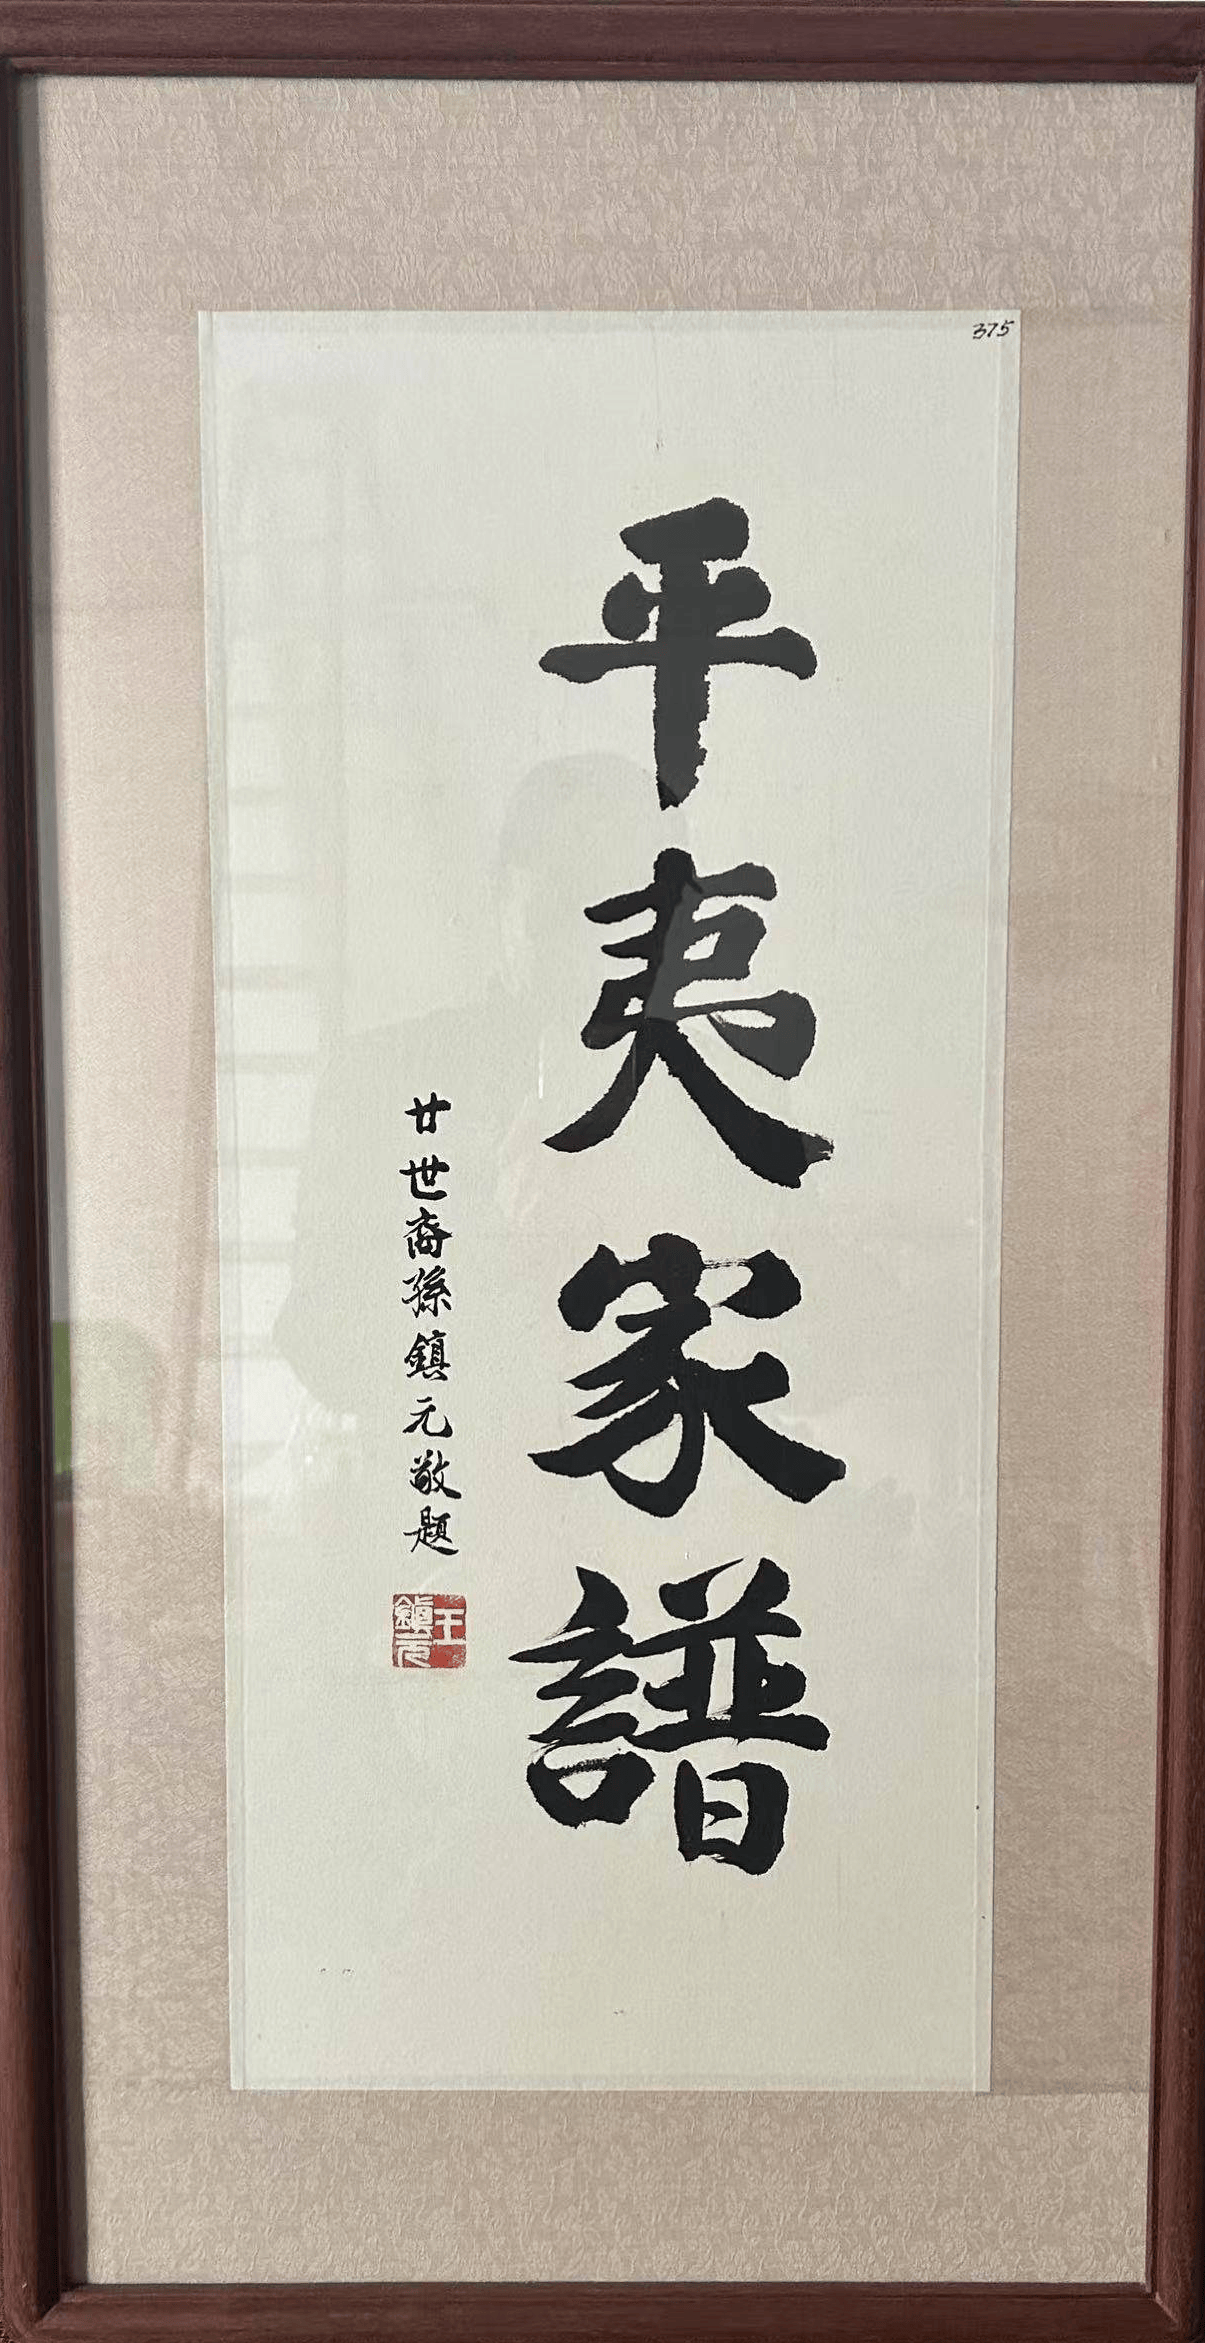 375
平夷家譜
廿世裔孫鎮元敬題
王鎮元